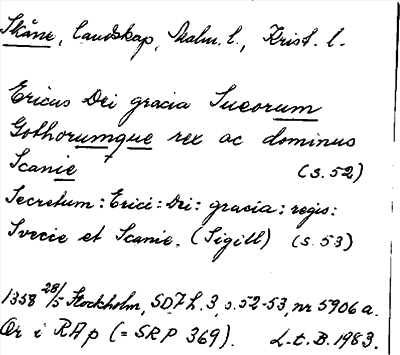 Skåne, landskap, Malm. l., Krist. l.
Ericus Dei gracia Sueorum
Gothorumque rex ac dominus
Scanie (s. 52)
Secretum: Erici: Dei: gracia: regis:
Svecie et Scanie. (Sigill) (s. 53)
1358 28/5 Stockholm, SD 7 h. 3, s. 52-53, nr 5906 a.
Or i RAp (= SRP 369). L-t. B. 1983.